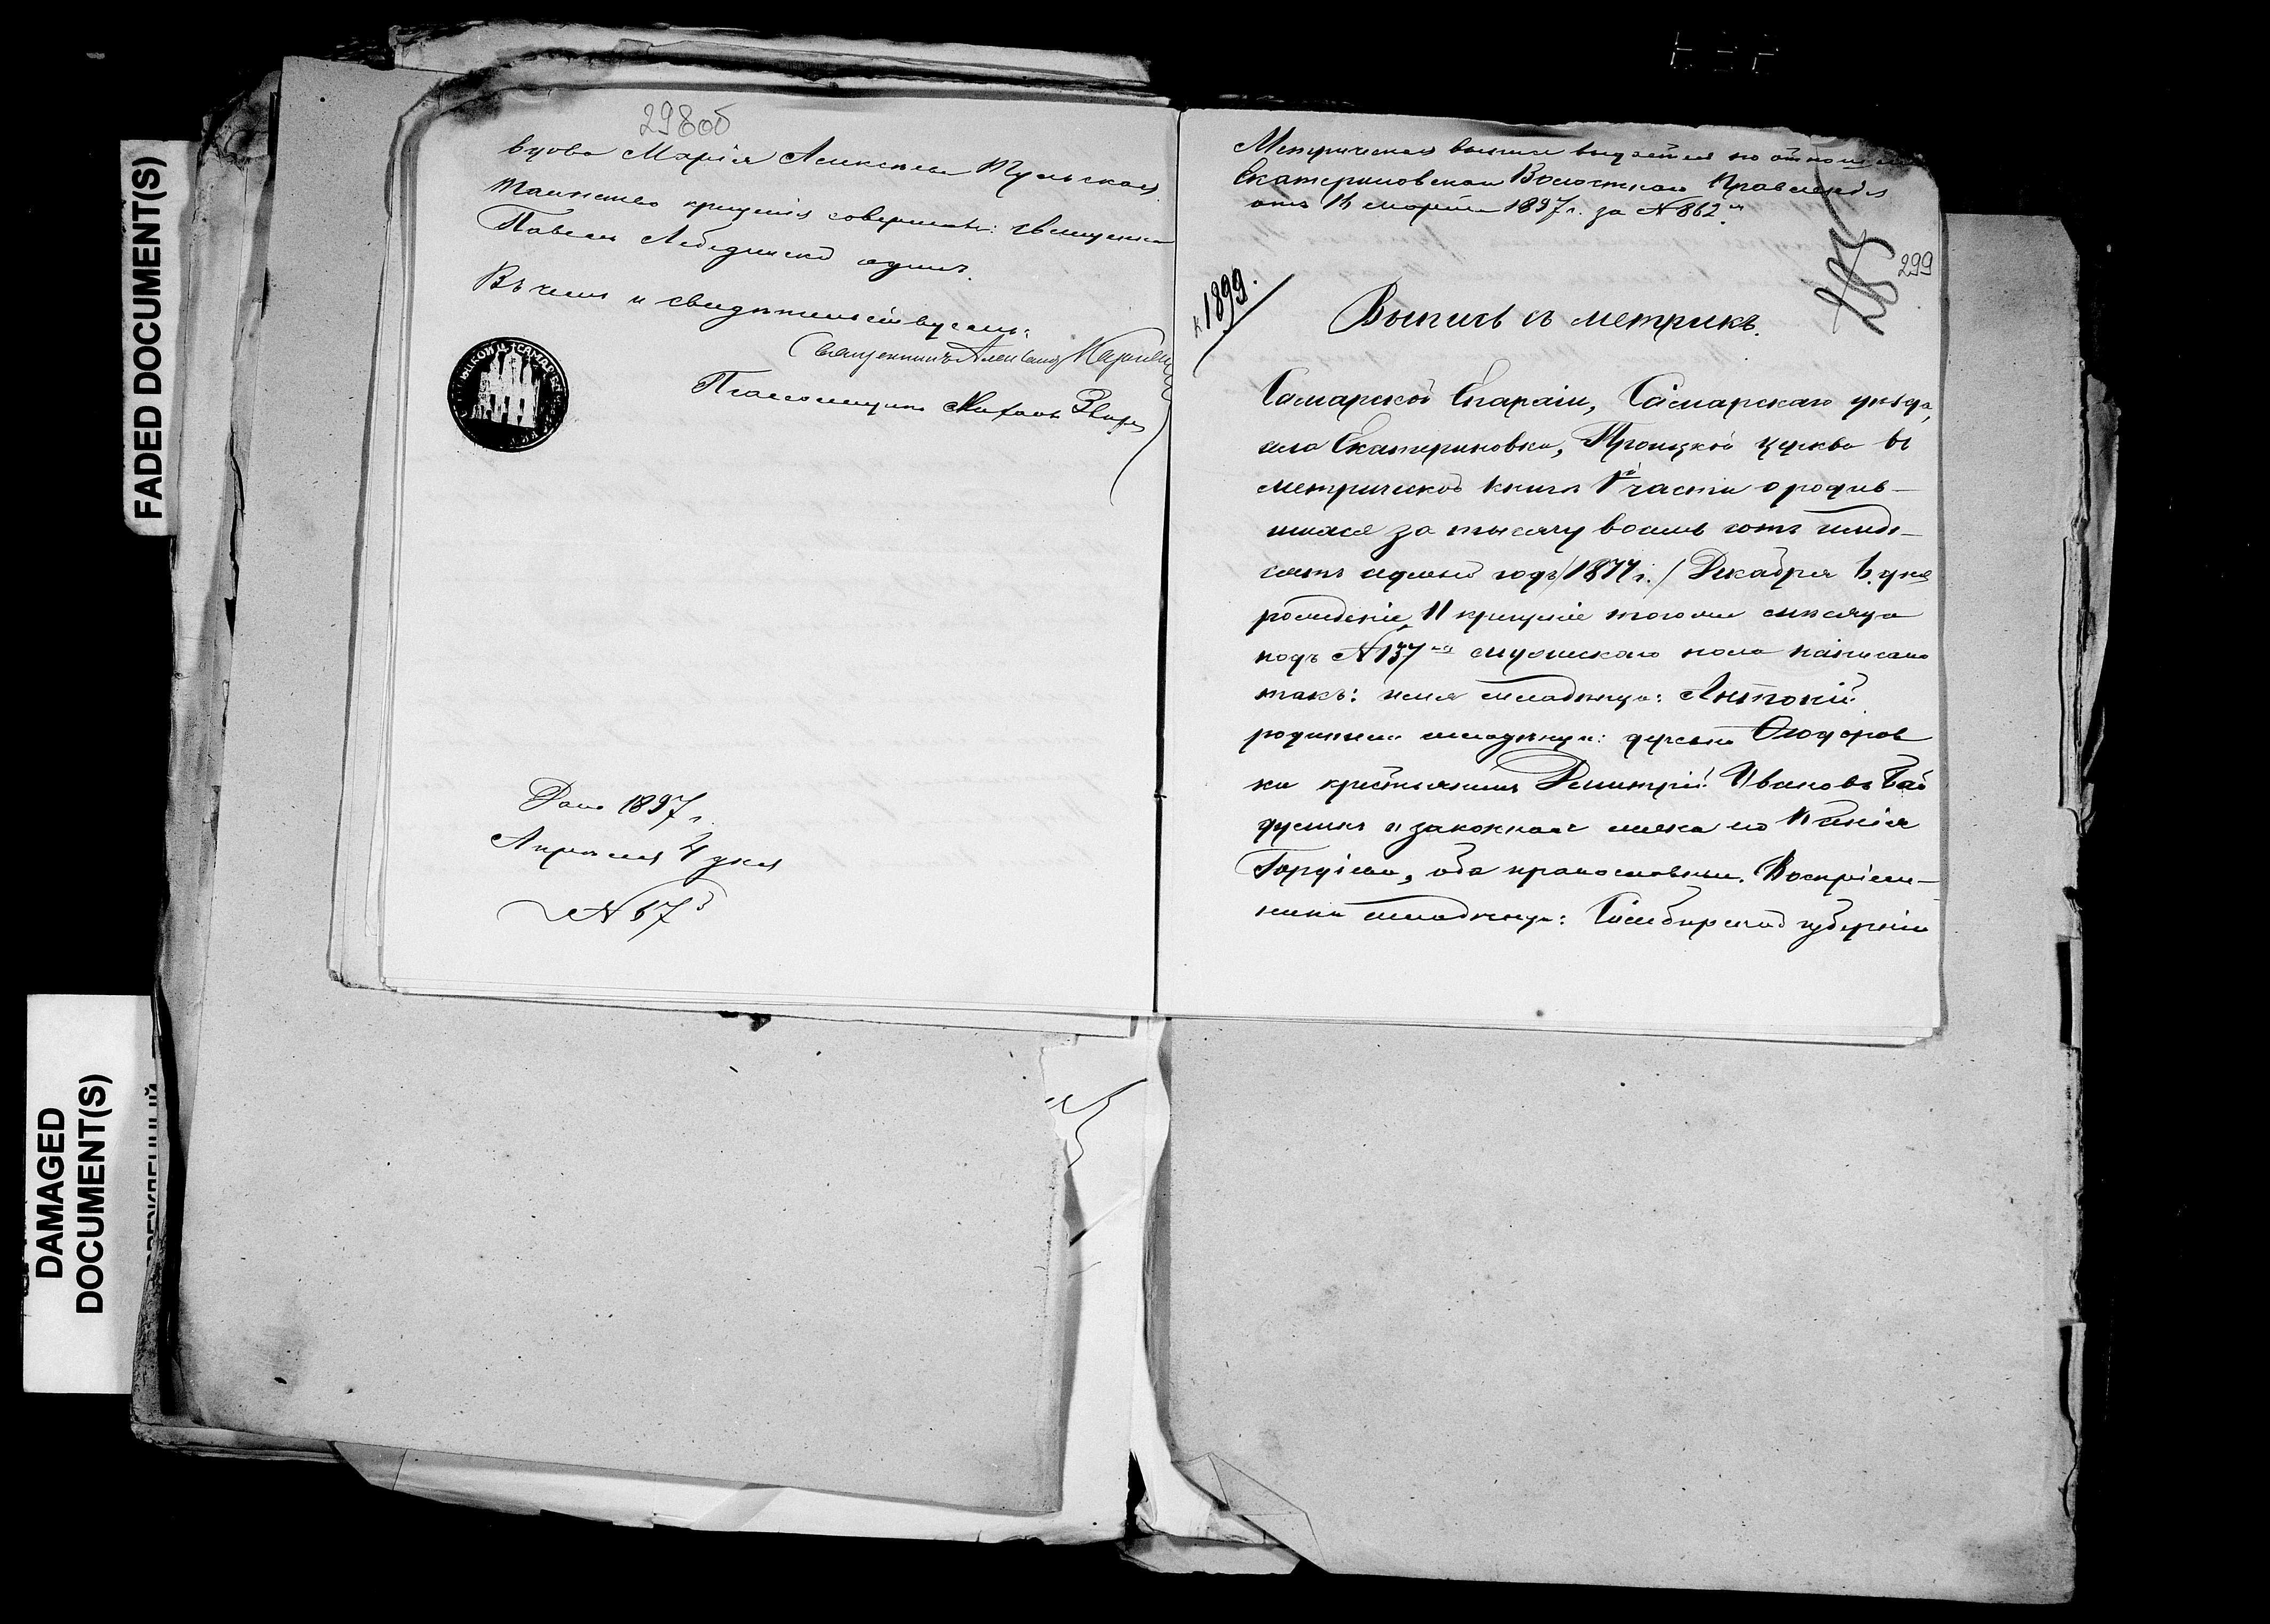 FADED DOCUMENT(S)
DAMAGED
DOCUMENT(S)
298об
вдова Марія Алексѣева Тульская
Таинство крещенія совершалъ: священникъ
Павелъ Лебединскій одинъ.
Въ чемъ и свидѣтельствуемъ:
Священникъ Александръ
Псаломщикъ Михаилъ
Дано 1897 г.
Апрѣля 4 дня
№ 67
Метрическая выпись выдается по отношенію
Екатериновскаго Волостнаго Правленія
отъ 14 марта 1897 г. за № 862.
285
299
к 1899.
Выпись съ метрикъ.
Самарской Епархіи, Самарскаго уѣзда,
села Екатериновки, Троицкой церкви въ
метрической книгѣ 1й части о родив-
шихся за тысячу восемь сотъ семьде-
сятъ седьмой годъ /1877 г./ Декабря 6 дня
рожденіе, 11 крещеніе тогоже мѣсяца
подъ № 137 мужескаго пола написано
такъ: имя младенца: Антоній
родители младенца: деревни Ѳедоров
ки крестьянинъ Димитрій Ивановъ Бай
и законная жена его Ксенія
Гордіева, оба православные. Воспріем-
ники младенца: Симбирской губерніи